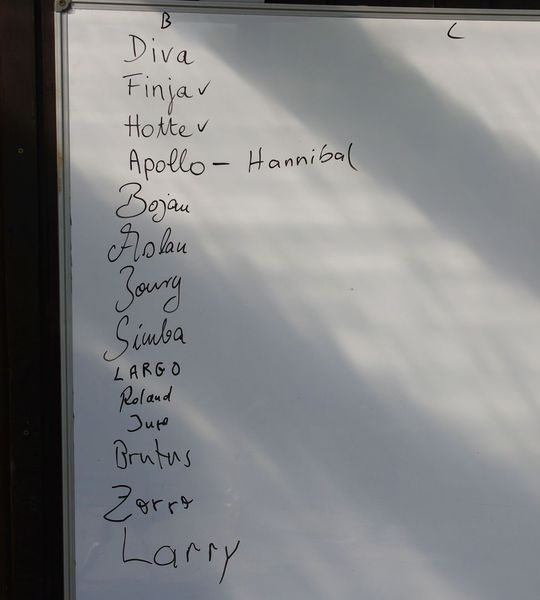 B C
Diva
Finja ✓
Hotte ✓
Apollo - Hannibal
Bojan
Aslan
Simba
LARGO
Roland
Brutus
Zorro
Larry